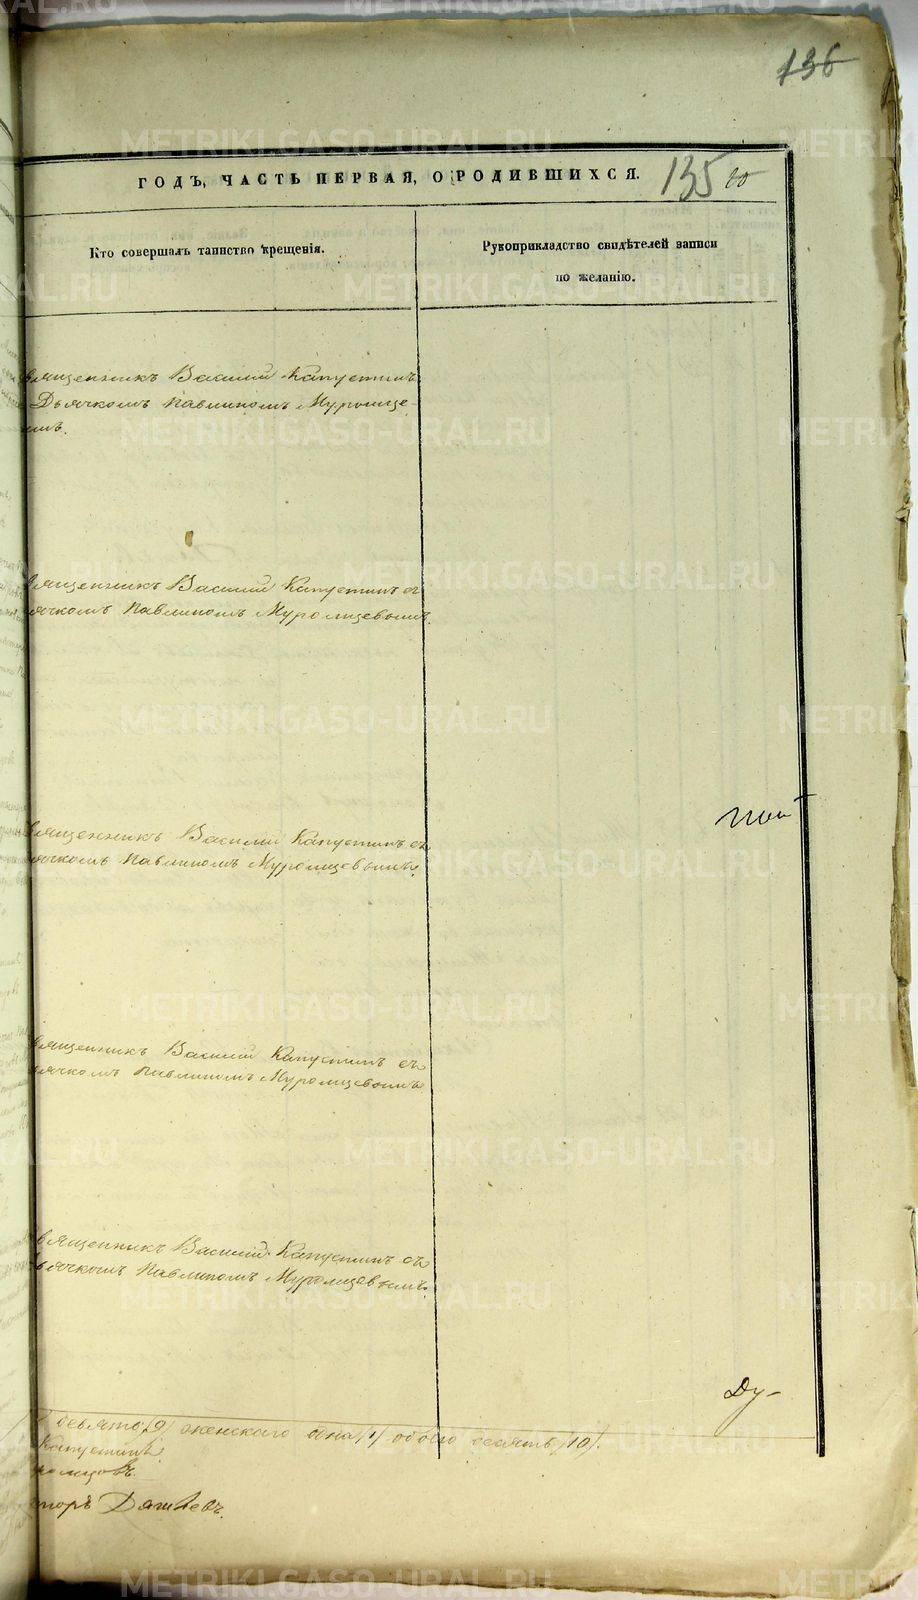 136
ГОДЪ, ЧАСТЬ ПЕРВАЯ, О РОДИВШИХСЯ.
135
Кто совершалъ таинство крещенія.
Рукоприкладство свидѣтелей записи
по желанію.
вященникъ Василій Капустинъ
Дьячкомъ Павлиномъ Муромце-
ымъ.
вященникъ Василій Капустинъ съ
ьячкомъ Павлиномъ Муромцевымъ.
вященникъ Василій Капустинъ съ
ьячкомъ Павлиномъ Муромцевымъ.
вященникъ Василій Капустинъ съ
ьячкомъ Павлиномъ Муромцевымъ
вященникъ Василій Капустинъ съ
ьячкомъ Павлиномъ Муромцевымъ.
Ду-
девять /9/ женскаго одна /1/ обоего десять /10/.
Капустинъ
ромцовъ.
METRIKI.GASO-URAL.RU